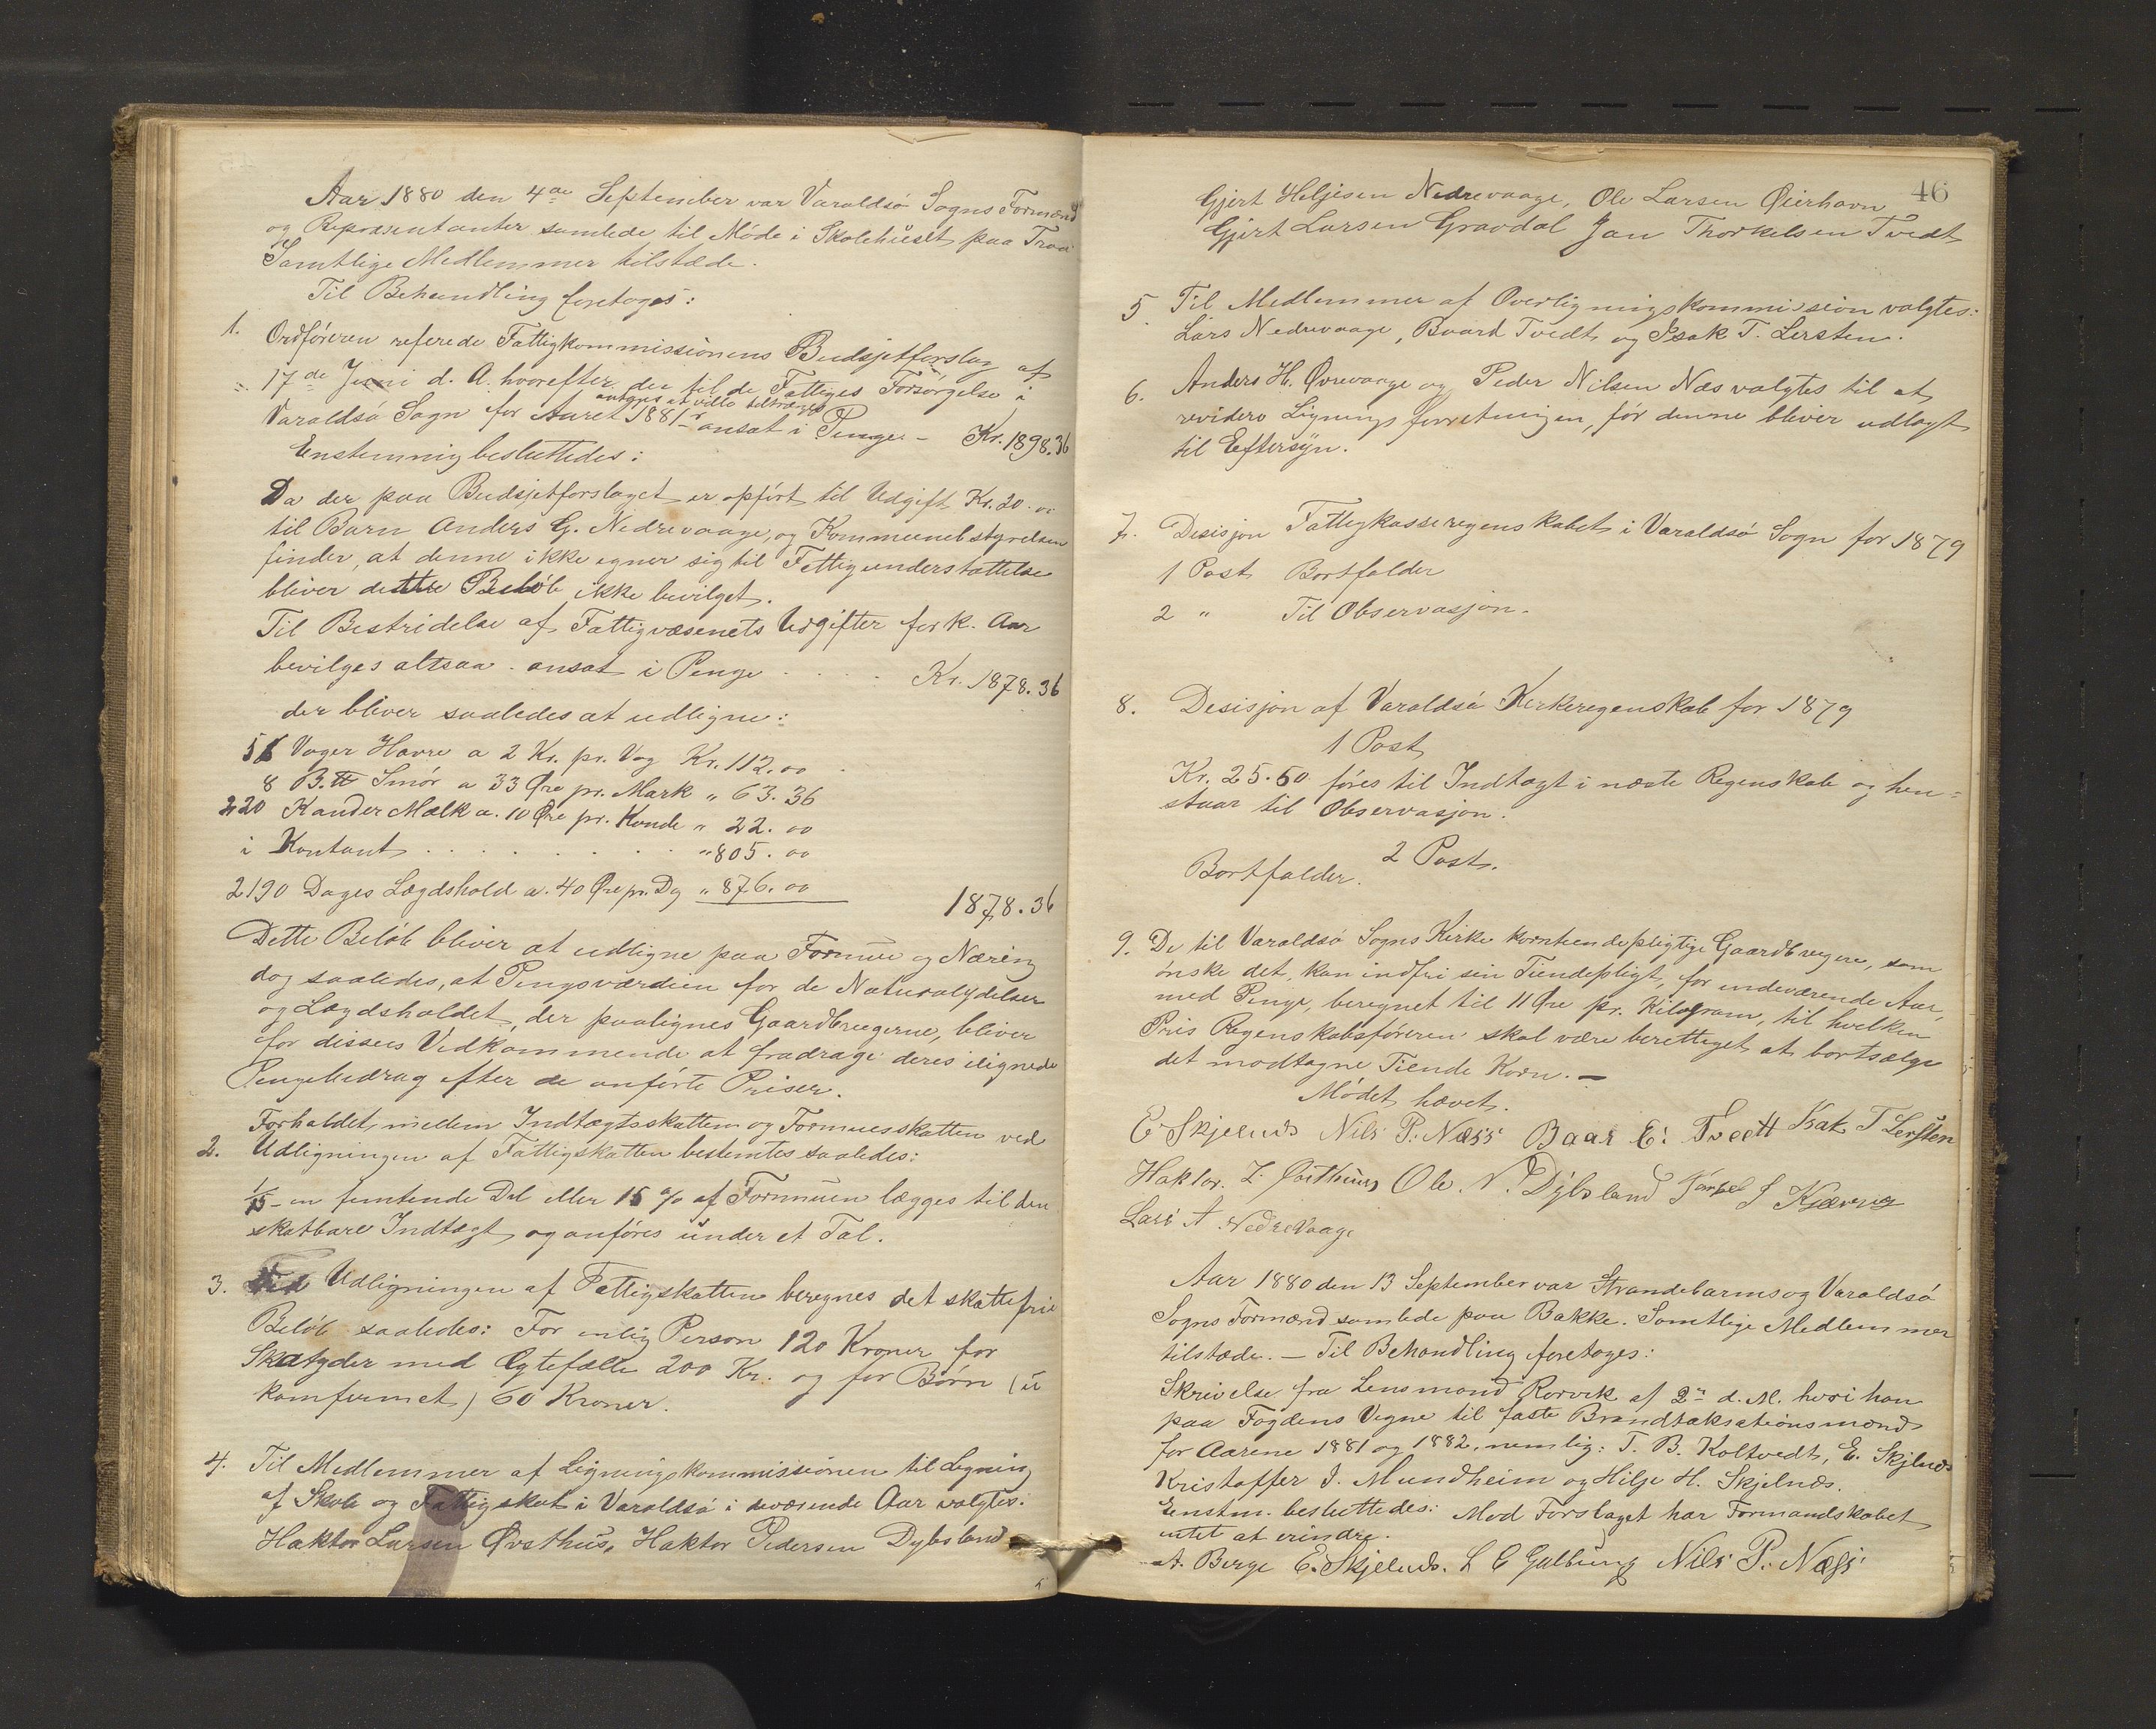 Aar 1880 den 4de September var Varaldsö Sogns Formænd
og Repræsentanter samlede til Möde i Skolehuset paa Traae
Samtlige Medlemmer tilstæde.
Til Behandling foretoges:
1. Ordföreren referede Fattigkommissionens Budsjetforslag af
17de Juni d. A. hvorefter der til de Fattiges Forsörgelse i
antages at ville tiltrænges
Varaldsö Sogn for Aaret 1881 - ansat i Penge - Kr. 1898.36
Enstemmig besluttedes:
Da der paa Budsjetforslaget er opfört til Udgift Kr. 20.00
til Barn Anders G. Nedrevaage, og Kommunebstyrelsen
finder, at denne ikke egner sig til Fettigunderstøttelse
bliver dette Beløb ikke bevilget.
Til Bestridelse af Fattigvæsenets Udgifter for k. Aar
bevilges altsaa - ansat i Penge . . . . Kr. 1878.36
der bliver saaledes at udligne:
56 Voger Havre a 2 Kr. pr. Vog Kr. 112.00
8 B.℔ Smör a 33 Øre pr. Mark " 63.36
220 Kander Mælk a. 10 Øre pr. Kande " 22.00
i Kontant . . . . . . . . " 805.00
2190 Dages Lægdshold a. 40 Øre pr. Dg " 876.00
1878.36
Dette Belöb bliver at udligne paa Formue og Næring
dog saaledes, at Pengeværdien for de Naturalydelser
og Lægdsholdet, der paalignes Gaardbrugerne, bliver
for disses Vedkommende at fradrage deres ilignede
Pengebedrag efter de anförte Priser.
Forholdet mellem Indtægtsskatten og Formuesskatten ved
2. Udligningen af Fattigskatten bestemtes saaledes:
1/15 - en femtende Del eller 15 % af Formuen lægges til den
skatbare Indtægt og anföres under et Tal.
3. Ved Udligningen af Fattigskatten beregnes det skattefrie
Belöb saaledes: For enlig Person 120 Kroner for
Skatyder med Ægtefælle 200 Kr. og for Börn (u
komfermet) 60 Kroner.
4. Til Medlemmer af Ligningskommissionen til Ligning
af Skole og Fattigskat i Varaldsö i neværende Aar valgtes:
Haktor Larsen Øvsthus, Haktor Pedersen Dybsland
46
Gjert Heljesen Nedrevaage, Ole Larsen Øierhavn
Gjert Larsen Gravdal Jan Thorkelsen Tvedt
5. Til Medlemmer af Overligningskommission valgtes:
Lars Nedrevaage, Baard Tvedt og Isak T. Lersten.
6. Anders H. Øvrevaage og Peder Nilsen Næs valgtes til at
revidere Ligningsforretningen, för denne bliver udlagt
til Eeftersyn.
7. Desisjon Fattigkasseregenskabet i Varaldsö Sogn for 1879
1 Post Bortfalder
2 " Til Observasjon.
8. Desisjon af Varaldsö Kirkeregenskab for 1879
1 Post
Kr. 25.60 föres til Indtægt i næste Regenskab og hen=
staar til Observasjon.
2 Post.
Bortfalder.
9. De til Varaldsö Sogns Kirke korntiendepligtige Gaardbrugere, som
önske det, kan indfri sin Tiendepligt, for indeværende Aar,
med Penge, beregnet til 11 Øre pr. Kilogram, til hvilken
Pris Regenskabsföreren skal være berettiget at bortsælge
det modtagne Tiende Korn. —
Mödet hævet.
E Skjelnæs Nils P. Næss Baar E. Tveett Isak T Lersten
Haktor. L Østhuus Ole. N. Dybsland J Kjærevig
Lars A. Nedrevaage
Aar 1880 den 13 September var Strandebarms og Varaldsö
Sogns Formænd samlede paa Bakke. Samtlige Medlemmer
tilstæde. — Til Behandling foretoges:
Skrivelse fra Lensmand Rørvik af 2n d. M. hvori han
paa Fogdens Vegne til faste Brandtaksationsmænd
for Aarene 1881 og 1882, nemlig: T. B. Koltvedt, E. Skjelnæs
Kristoffer I. Mundheim og Hilje H. Skjelnæs.
Enstm. besluttedes: Mod Forslaget har Formandskabet
intet at erindre.
A. Berge E. Skjelnæs. L C Galtung Nils P. Næss